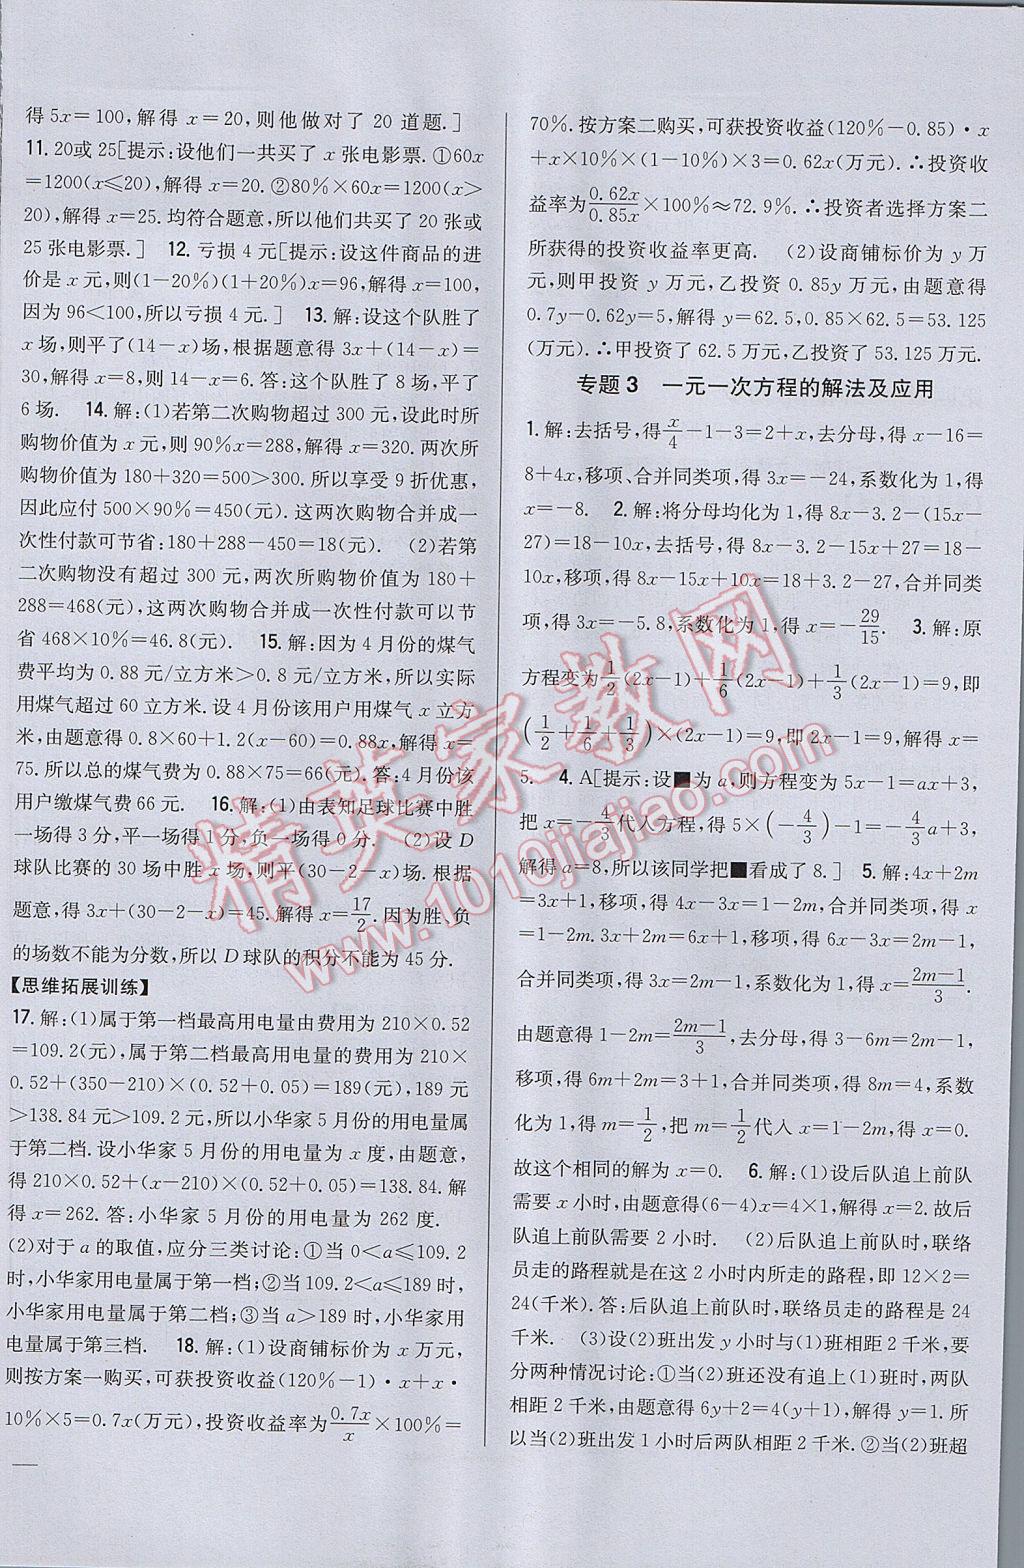 得5x=100,解得 x=20,则他做对了 20 道题.]
11. 20或 25[提示:设他们一共买了 x 张电影票.①60x
=1200(x≤20),解得 x=20.②80%×60x=1200(x>
20),解得 x=25.均符合题意,所以他们共买了 20 张或
25 张电影票.] 12. 亏损 4 元[提示:设这件商品的进
价是 x 元,则(1-20%)(1+20%)x=96,解得 x=100,
因为 96<100,所以亏损 4 元.] 13. 解:设这个队胜了
x 场,则平了(14-x)场,根据题意得 3x+(14-x)=
30,解得 x=8,则 14-x=6.答:这个队胜了 8 场,平了
6 场. 14. 解:(1)若第二次购物超过 300 元,设此时所
购物价值为 x 元,则 90%x=288,解得 x=320.两次所
购物价值为 180+320=500>300.所以享受 9 折优惠,
因此应付 500×90%=450(元).这两次购物合并成一
次性付款可节省:180+288-450=18(元). (2)若第
二次购物没有超过 300 元,两次所购物价值为 180+
288=468(元),这两次购物合并成一次性付款可以节
省 468×10%=46.8(元). 15. 解:因为 4 月份的煤气
费平均为 0.88 元/立方米>0.8 元/立方米,所以实际
用煤气超过 60 立方米.设 4 月份该用户用煤气 x 立方
米,由题意得 0.8×60+1.2(x-60)=0.88x,解得 x=
75.所以总的煤气费为 0.88×75=66(元).答:4 月份该
用户缴煤气费 66 元. 16. 解:(1)由表知足球比赛中胜
一场得 3 分,平一场得 1 分,负一场得 0 分. (2)设 D
球队比赛的 30 场中胜 x 场,则平(30-2-x)场.根据
题意,得 3x+(30-2-x)=45.解得 x=17/2.因为胜、负
的场数不能为分数,所以 D 球队的积分不能为 45 分.
【思维拓展训练】
17. 解:(1)属于第一档最高用电量由费用为 210×0.52
=109.2(元),属于第二档最高用电量的费用为 210×
0.52+(350-210)×(0.52+0.05)=189(元),189 元
>138.84 元>109.2 元,所以小华家 5 月份的用电量属
于第二档.设小华家 5 月份的用电量为 x 度,由题意,
得 210×0.52+(x-210)×(0.52+0.05)=138.84.解
得 x=262.答:小华家 5 月份的用电量为 262 度.
(2)对于 a 的取值,应分三类讨论:①当 0<a≤109.2
时,小华家用电量属于第一档;②当 109.2<a≤189 时,
小华家用电量属于第二档;③当 a>189 时,小华家用
电量属于第三档. 18. 解:(1)设商铺标价为 x 万元,
则按方案一购买,可获投资收益(120%-1)·x+x·
10%×5=0.7x(万元),投资收益率为0.7x/x×100%=
70%.按方案二购买,可获投资收益(120%-0.85)·x
+x×10%×(1-10%)×3=0.62x(万元).∴投资收
益率为0.62x/0.85x×100%≈72.9%.∴投资者选择方案二
所获得的投资收益率更高. (2)设商铺标价为 y 万
元,则甲投资 y 万元,乙投资 0.85y 万元,由题意得
0.7y-0.62y=5,解得 y=62.5,0.85×62.5=53.125
(万元).∴甲投资了 62.5 万元,乙投资了 53.125 万元.
专题 3 一元一次方程的解法及应用
1. 解:去括号,得x/4-1-3=2+x,去分母,得 x-16=
8+4x,移项、合并同类项,得 3x=-24,系数化为 1,得
x=-8. 2. 解:将分母均化为 1,得 8x-3.2-(15x-
27)=18-10x,去括号,得 8x-3.2-15x+27=18-
10x,移项,得 8x-15x+10x=18+3.2-27,合并同类
项,得 3x=-5.8,系数化为 1,得 x=-29/15. 3. 解:原
方程变为1/2(2x-1)+1/6(2x-1)+1/3(2x-1)=9,即
(1/2+1/6+1/3)×(2x-1)=9,即 2x-1=9,解得 x=
5. 4. A[提示:设■为 a,则方程变为 5x-1=ax+3,
把 x=-4/3代入方程,得 5×(-4/3)-1=-4/3a+3,
解得 a=8,所以该同学把■看成了 8.] 5. 解:4x+2m
=3x+1,移项,得 4x-3x=1-2m,合并同类项,得 x
=1-2m.3x+2m=6x+1,移项,得 6x-3x=2m-1,
合并同类项,得 3x=2m-1,系数化为 1,得 x=2m-1/3.
由题意得 1-2m=2m-1/3,去分母,得 3-6m=2m-1,
移项,得 6m+2m=3+1,合并同类项,得 8m=4,系数
化为 1,得 m=1/2,把 m=1/2代入 x=1-2m,得 x=0.
故这个相同的解为 x=0. 6. 解:(1)设后队追上前队
需要 x 小时,由题意得(6-4)x=4×1,解得 x=2.故后
队追上前队需要 2 小时. (2)后队追上前队时,联络
员走的路程就是在这 2 小时内所走的路程,即 12×2=
24(千米).答:后队追上前队时,联络员走的路程是 24
千米. (3)设(2)班出发 y 小时与(1)班相距 2 千米,要
分两种情况讨论:①当(2)班还没有追上(1)班时,两队
相距 2 千米,由题意得 6y+2=4(y+1),解得 y=1.所
以当(2)班出发 1 小时后两队相距 2 千米.②当(2)班超
精英家教网
www.1010jiajiao.com